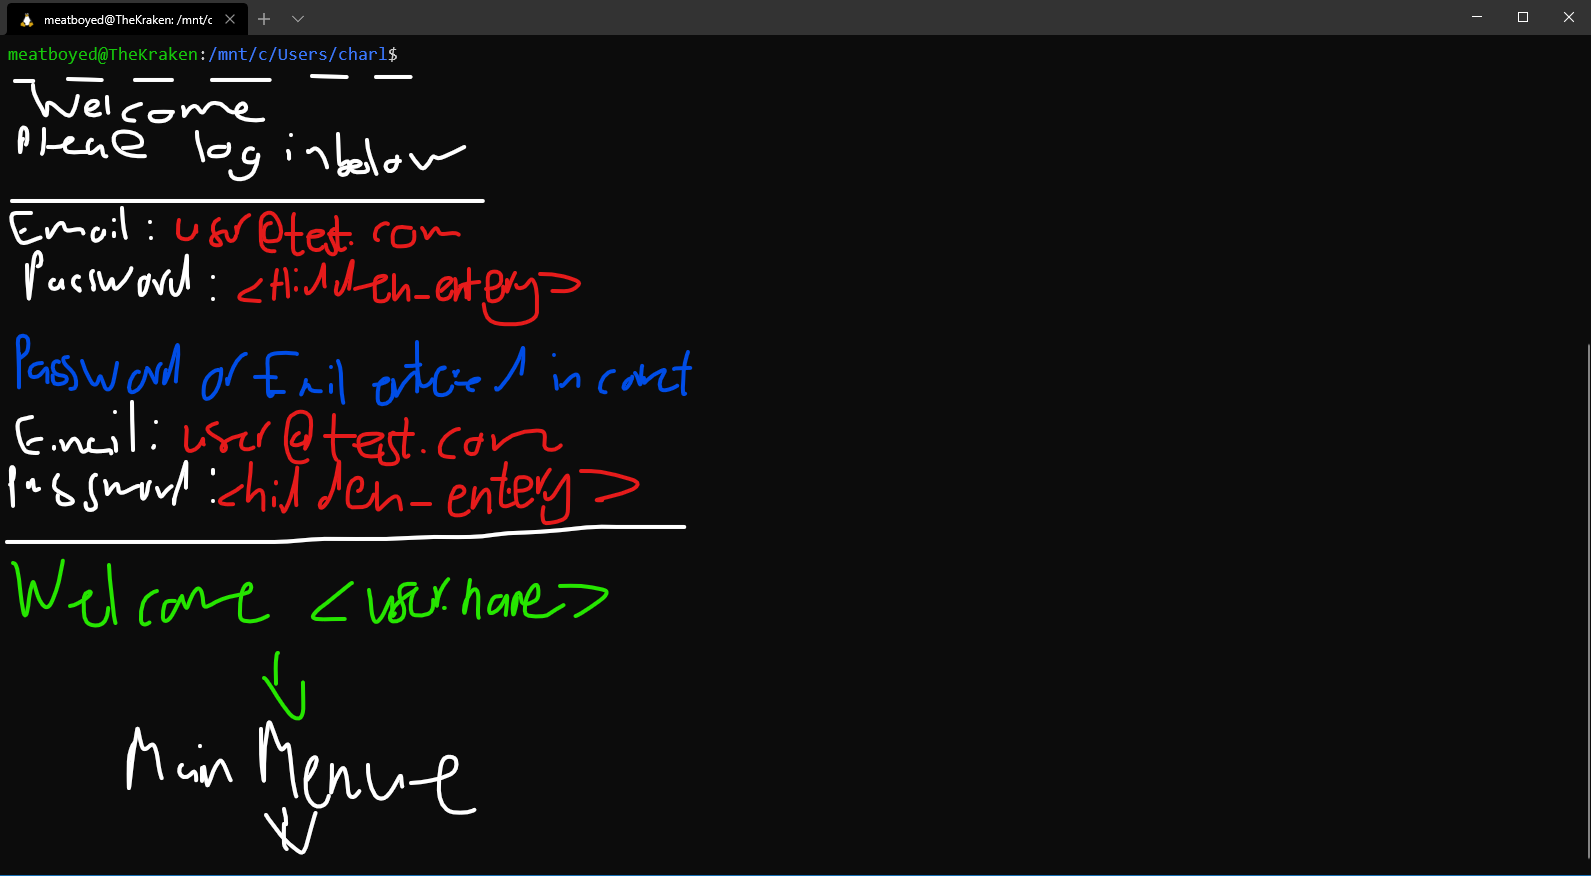 meatboyed@TheKraken: /mnt/c
meatboyed@TheKraken:/mnt/c/Users/charl$
Welcome
Please log in below
Email: usr@test.com
Password: <Hidden_entery>
Password or Email entered incorrect
Email: user@test.com
Password: <hidden_entery>
Welcome <username>
Main Menue